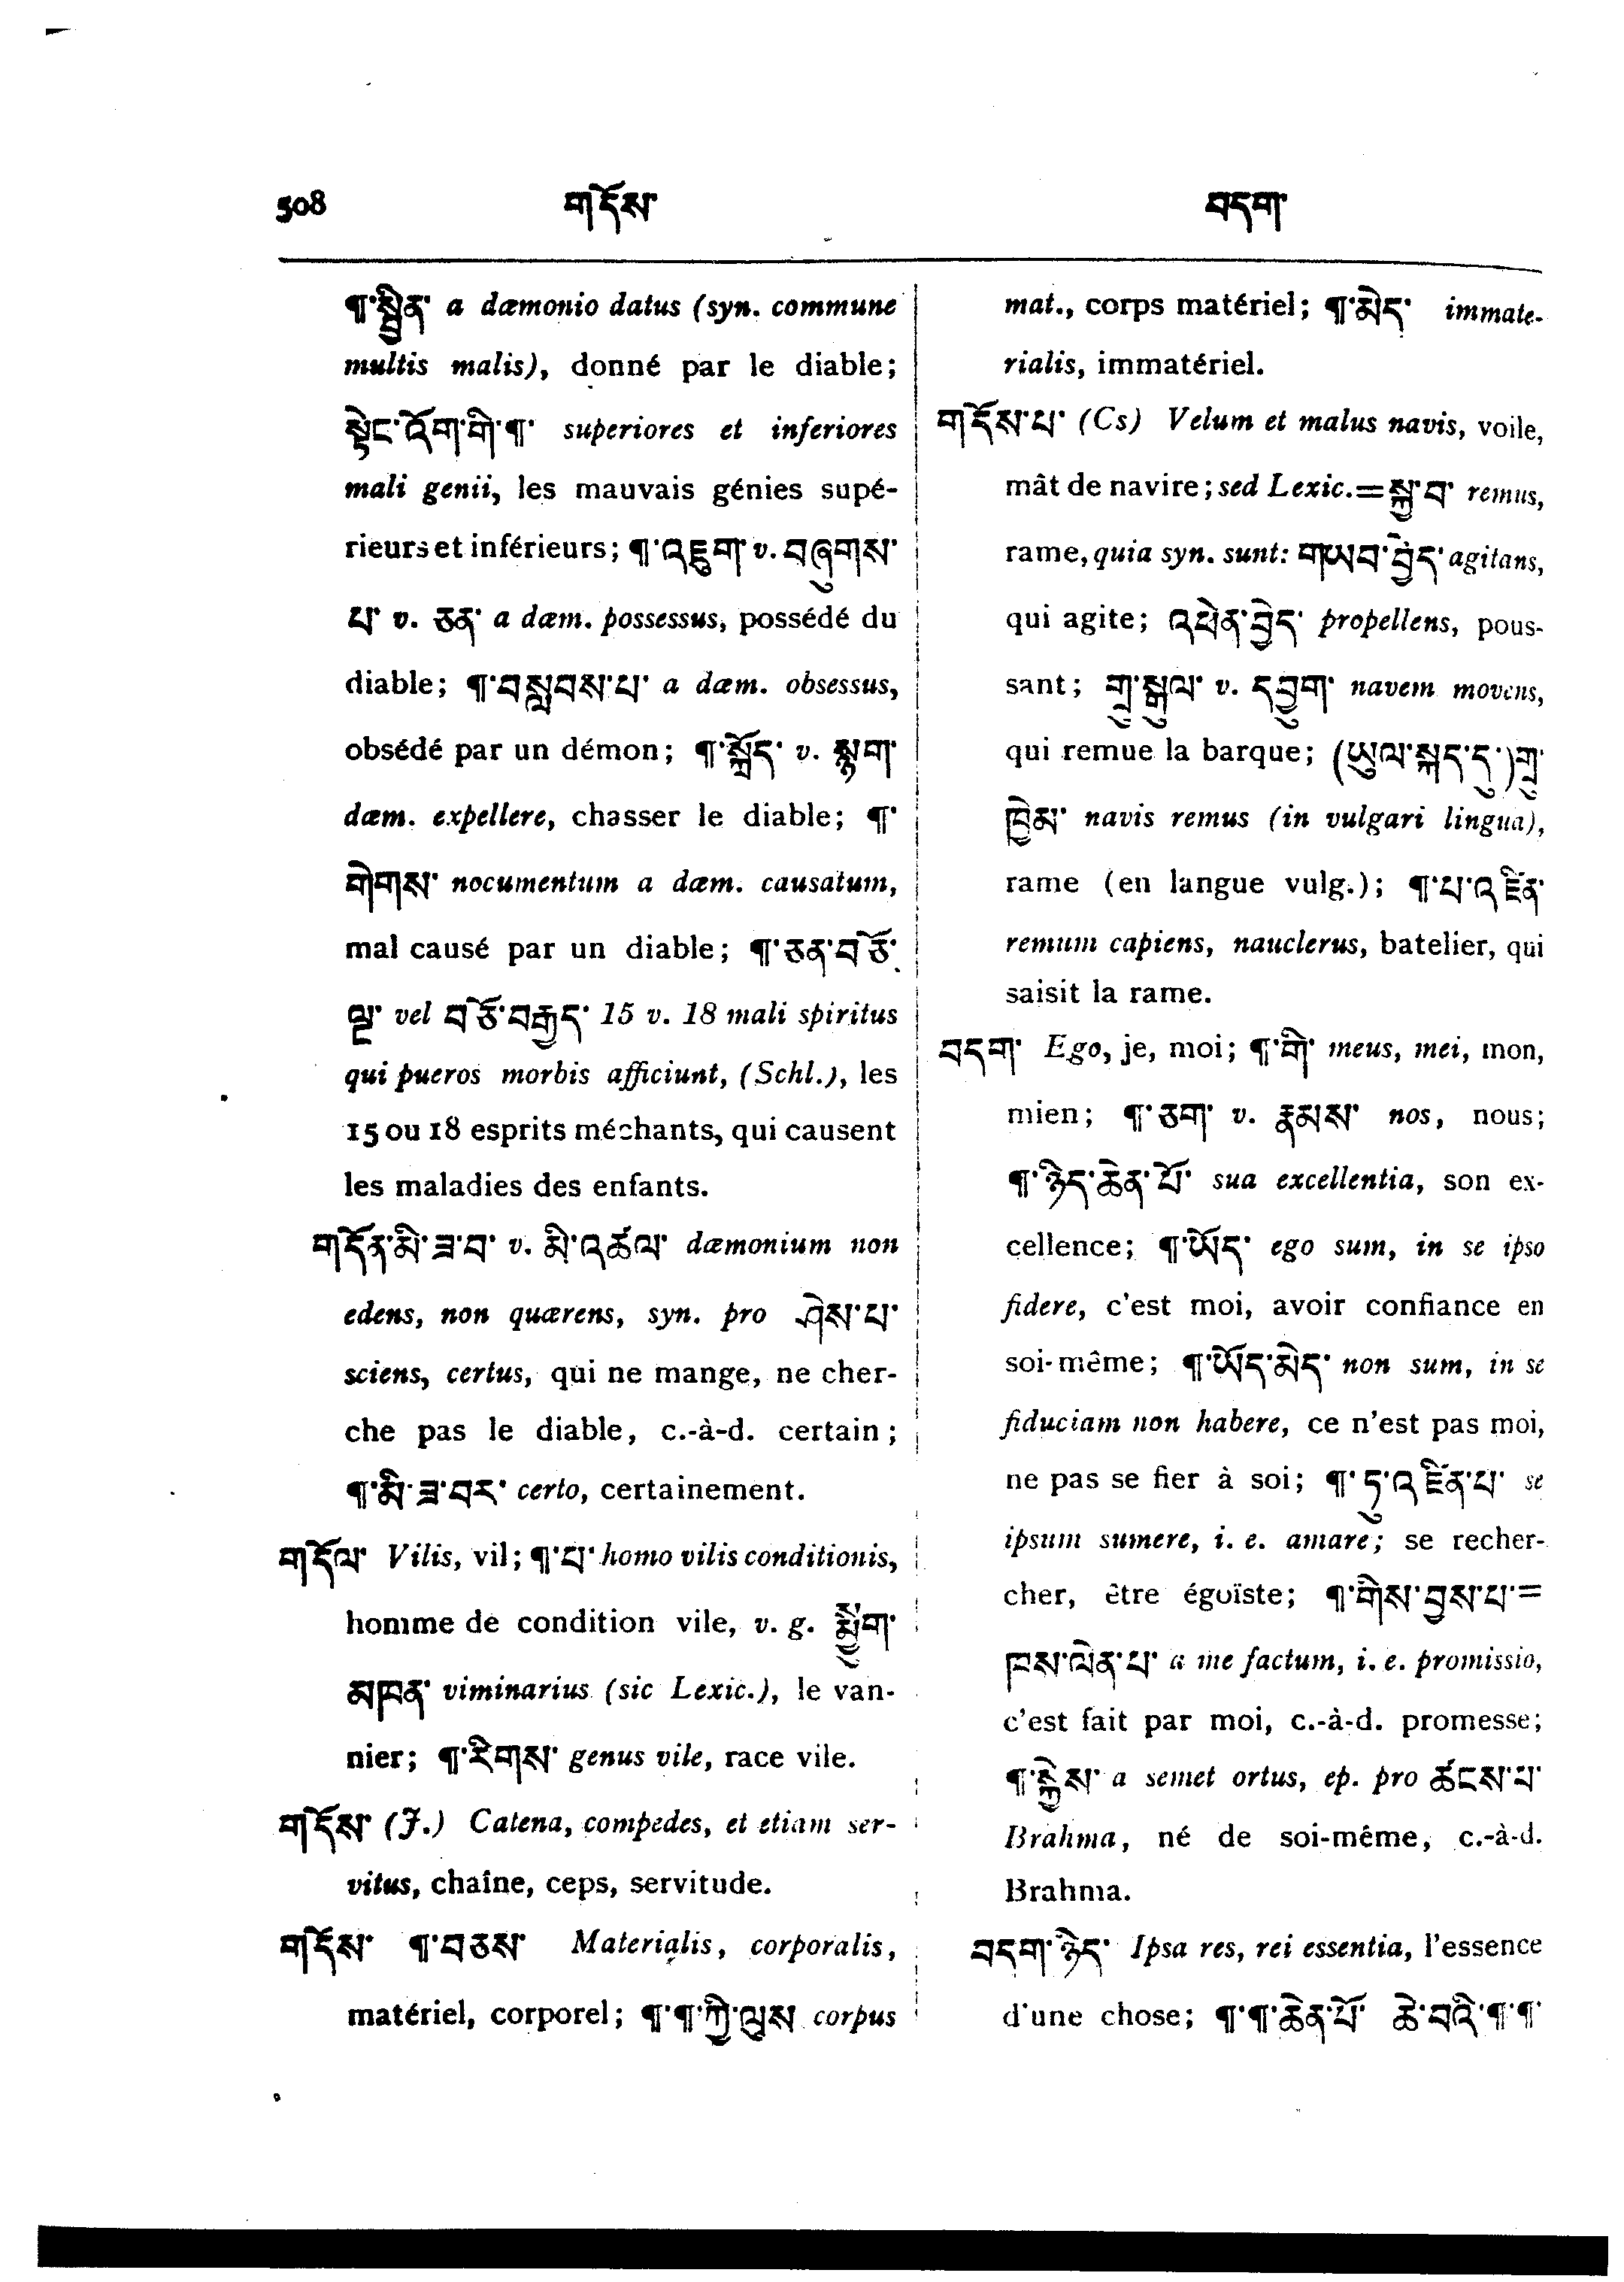 508 གདོས་ བདག་
¶་སྦྱིན་ a dæmonio datus (syn. commune
multis malis), donné par le diable;
སྟེང་འོག་གི་¶་ superiores et inferiores
mali genii, les mauvais génies supé-
rieurs et inférieurs; ¶་འཇུག་ v. བཞུགས་
པ་ v. ཅན་ a dæm. possessus, possédé du
diable; ¶་བསླབས་པ་ a dæm. obsessus,
obsédé par un démon; ¶་སྐྲོད་ v. སྙག་
dæm. expellere, chasser le diable; ¶་
གེགས་ nocumentum a dæm. causatum,
mal causé par un diable; ¶་ཅན་བཅོ་
ལྔ་ vel བཅོ་བརྒྱད་ 15 v. 18 mali spiritus
qui pueros morbis afficiunt, (Schl.), les
15 ou 18 esprits méchants, qui causent
les maladies des enfants.
གདོན་མི་ཟ་བ་ v. མི་འཚལ་ dæmonium non
edens, non quærens, syn. pro ཤེས་པ་
sciens, certus, qui ne mange, ne cher-
che pas le diable, c.-à-d. certain;
¶་མི་ཟ་བར་ certo, certainement.
གདོལ་ Vilis, vil; ¶་པ་ homo vilis conditionis,
homme de condition vile, v. g. སྨྱིག་
མཁན་ viminarius (sic Lexic.), le van-
nier; ¶་རིགས་ genus vile, race vile.
གདོས་ (J.) Catena, compedes, et etiam ser-
vitus, chaîne, ceps, servitude.
གདོས་ ¶་བཅས་ Materialis, corporalis,
matériel, corporel; ¶་¶་ཀྱི་ལུས corpus
mat., corps matériel; ¶་མེད་ immate-
rialis, immatériel.
གདོས་པ་ (Cs) Velum et malus navis, voile,
mât de navire; sed Lexic.=སྐྱ་བ་ remus,
rame, quia syn. sunt: གཡབ་བྱེད་ agitans,
qui agite; འཕེན་བྱེད་ propellens, pous-
sant; གྲུ་སྒུལ་ v. དབྱུག་ navem movens,
qui remue la barque; (ཡུལ་སྐད་དུ་)གྲུ་
ཁྱེམ་ navis remus (in vulgari lingua),
rame (en langue vulg.); ¶་པ་འཛིན་
remum capiens, nauclerus, batelier, qui
saisit la rame.
བདག་ Ego, je, moi; ¶་གི་ meus, mei, mon,
mien; ¶་ཅག་ v. རྣམས་ nos, nous;
¶་ཉིད་ཆེན་པོ་ sua excellentia, son ex-
cellence; ¶་ཡོད་ ego sum, in se ipso
fidere, c'est moi, avoir confiance en
soi-même; ¶་ཡོད་མེད་ non sum, in se
fiduciam non habere, ce n'est pas moi,
ne pas se fier à soi; ¶་ཏུ་འཛིན་པ་ se
ipsum sumere, i. e. amare; se recher-
cher, être égoïste; ¶་གིས་བྱས་པ་=
ཁས་ལེན་པ་ a me factum, i. e. promissio,
c'est fait par moi, c.-à-d. promesse;
¶་སྐྱེས་ a semet ortus, ep. pro ཚངས་པ་
Brahma, né de soi-même, c.-à-d.
Brahma.
བདག་ཉིད་ Ipsa res, rei essentia, l'essence
d'une chose; ¶་¶་ཆེན་པོ་ ཆེ་བའི་¶་¶་